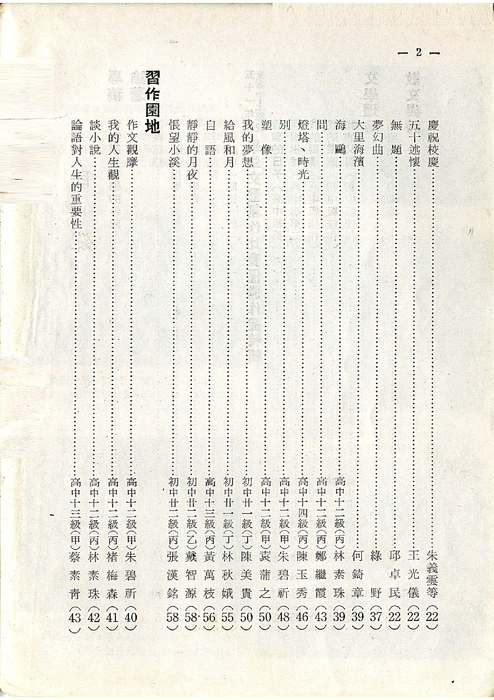 — 2 —
慶祝校慶⋯⋯朱義雲等(22)
五十述懷⋯⋯王光儀(22)
無題⋯⋯邱卓民(22)
夢幻曲⋯⋯綠野(37)
大里海濱⋯⋯何錡章(39)
海鷗⋯⋯高中十二級(丙)林素珠(39)
問⋯⋯高中十二級(丙)鄭繼霞(43)
燈塔、時光⋯⋯高中十四級(丙)陳玉秀(46)
別⋯⋯高中十二級(甲)朱碧祈(48)
塑像⋯⋯高中十二級(甲)袁蒲之(50)
我的夢想⋯⋯初中廿一級(丁)陳美貴(50)
給風和月⋯⋯初中廿一級(丁)林秋娥(55)
自語⋯⋯高中十三級(丙)黃萬枝(56)
靜靜的月夜⋯⋯初中廿二級(乙)戴智源(58)
悵望小溪⋯⋯初中廿二級(丙)張漢銘(58)
習作園地
作文觀摩⋯⋯高中十二級(甲)朱碧祈(40)
我的人生觀⋯⋯高中十二級(丙)褚梅森(41)
談小說⋯⋯高中十二級(丙)林素珠(42)
論語對人生的重要性⋯⋯高中十三級(甲)蔡素青(43)